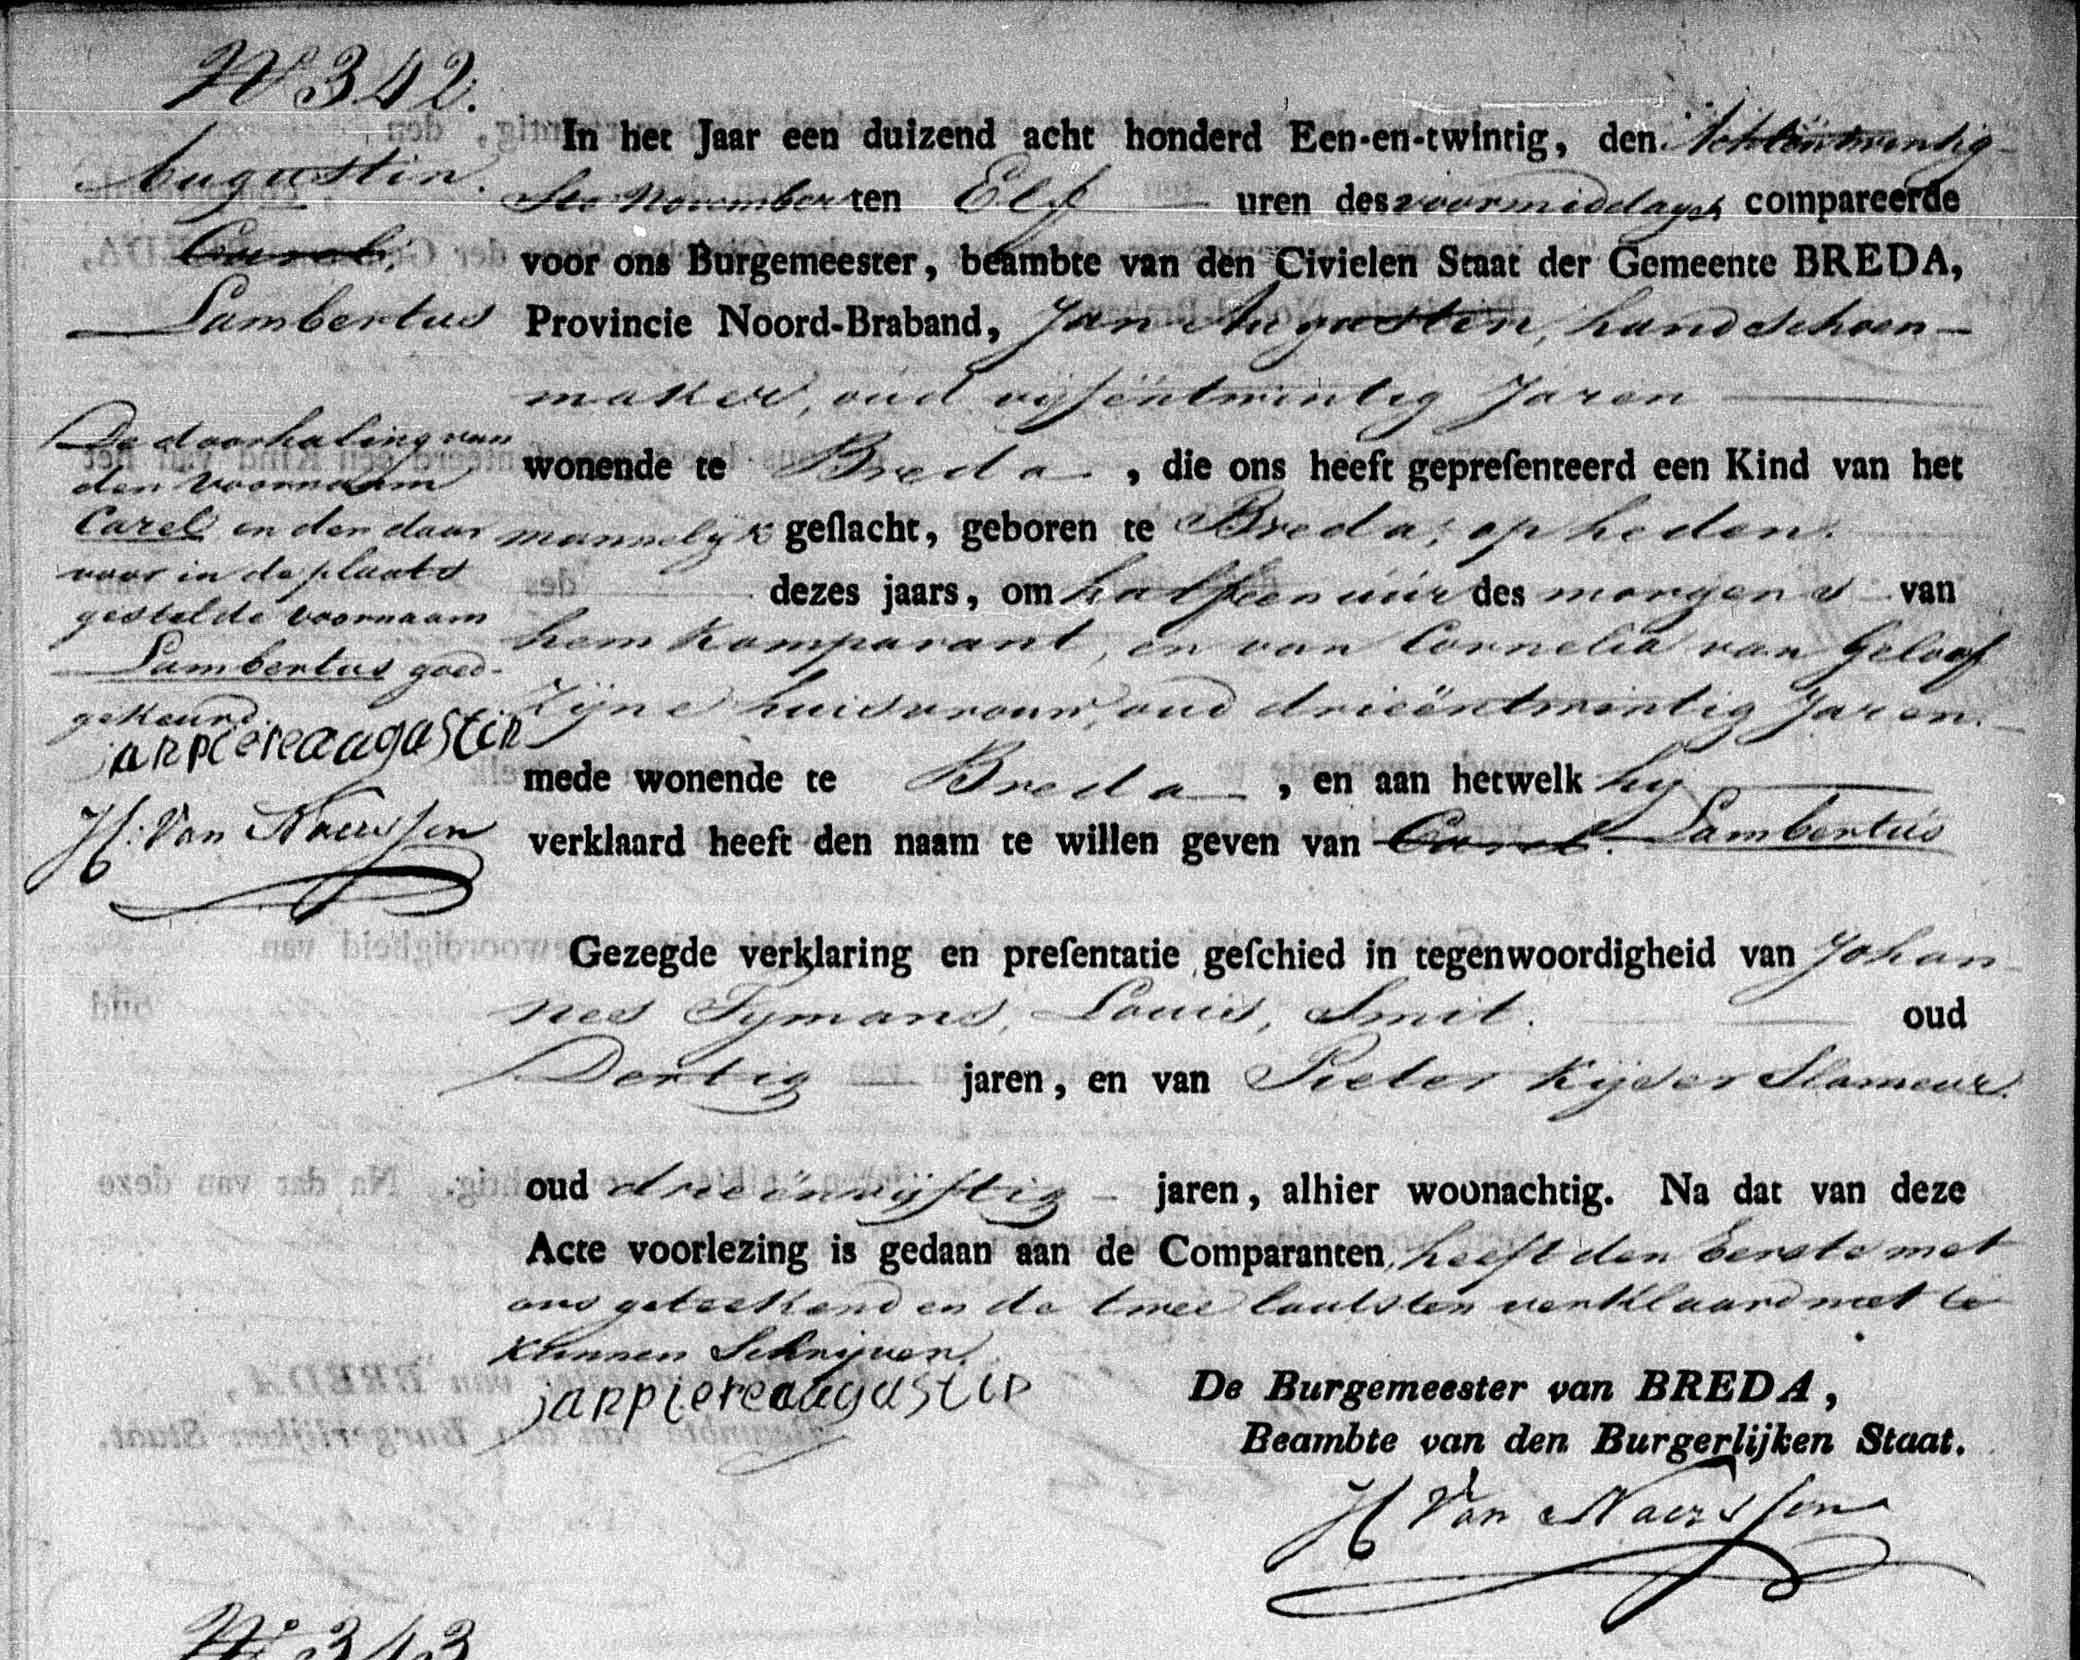 N° 342.
Augustin.
Carel.
Lambertus
De doorhaling van
den voornaam
Carel en den daar
voor in de plaats
gestelde voornaam
Lambertus goed-
gekeurd.
janpietereaugustin
H. Van Naerssen
In het Jaar een duizend acht honderd Een-en-twintig, den Achtëntwintig-
sten November ten Elf uren des voormiddags compareerde
voor ons Burgemeester, beambte van den Civielen Staat der Gemeente BREDA,
Provincie Noord-Braband, Jan Augustin, handschoen-
maker, oud vijfëntwintig Jaren
wonende te Breda, die ons heeft gepreſenteerd een Kind van het
mannelijk geſlacht, geboren te Breda, op heden.
dezes jaars, om half een uur des morgens van
hem Komparant, en van Cornelia van Geloof
Zijne huisvrouw, oud drieëntwintig Jaren.
mede wonende te Breda, en aan hetwelk hij
verklaard heeft den naam te willen geven van Carel. Lambertus
Gezegde verklaring en preſentatie geſchied in tegenwoordigheid van Johan-
nes Tijmans, Louis, Smit. oud
Dertig jaren, en van Pieter Kijser Slameur.
oud drieënvijftig jaren, alhier woonachtig. Na dat van deze
Acte voorlezing is gedaan aan de Comparanten, heeft den Eerste met
ons geteekend en de twee laatsten verklaard niet te
Kunnen Schrijven.
janpietereaugustin
De Burgemeester van BREDA,
Beambte van den Burgerlijken Staat.
H Van Naerssen
N° 343